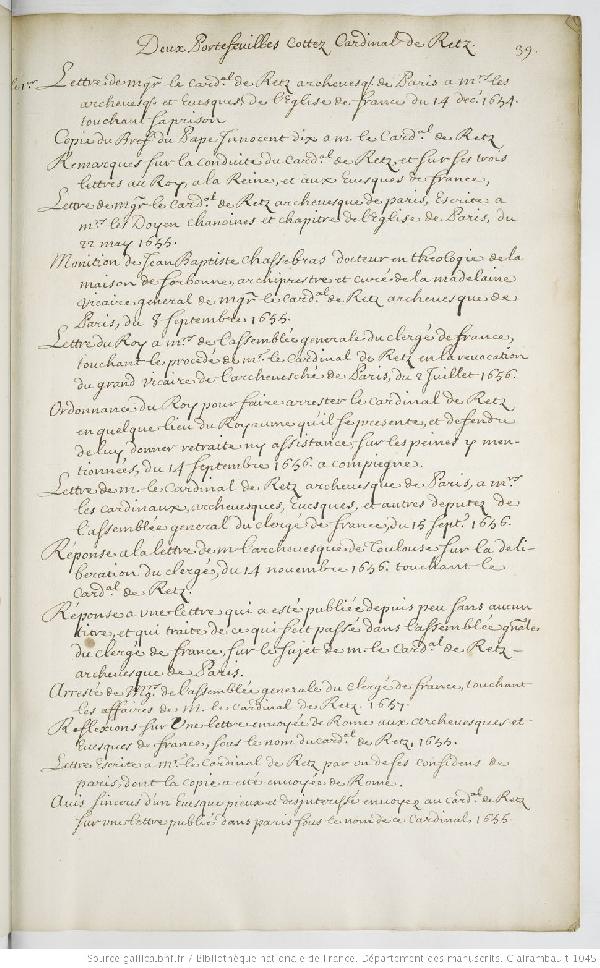 Deux Portefeuilles Cottez Cardinal de Retz.
39.
le 1er
Lettre de mgr le Card.al de Retz archeuesq. de Paris a mrs les
archeuesq. et Euesques de l'Eglise de france du 14 dec. 1654.
touchant sa prison
Copie du Bref du Pape Innocent dix a m. le Card.al de Retz
Remarques sur la conduite du Card.al de Retz, et sur ses trois
lettres au Roy, a la Reine, et aux Euesques de france,
Lettre de mgr le Card.al de Retz archeuesque de paris, Escrite a
mrs les Doyen chanoines et chapitre de l'Eglise de Paris, du
22 may 1655.
Monition de Jean Baptiste Chassebras docteur en theologie de la
maison de sorbonne, archiprestre et curé de la madelaine
vicaire general de mgr le Card.al de Retz archeuesque de
Paris, du 8 septembre 1655.
Lettre du Roy a mrs de l'assemblée generale du clergé de france,
touchant le procedé de mr le Cardinal de Retz en la reuocation
du grand vicaire de l'archeuesché de Paris, du 2 Juillet 1656.
Ordonnance du Roy pour faire arrester le Cardinal de Retz
en quelque lieu du Royaume qu'il se presente, et defend
de luy donner retraite ny assistance, sur les peines y men-
tionnées, du 14 septembre 1656. a compiegne.
Lettre de m. le Cardinal de Retz archeuesque de Paris, a mrs
les cardinaux, archeuesques, Euesques, et autres deputez de
l'assemblée general du clergé de france, du 15 sept. 1656.
Réponse a la lettre de m l'archeuesque de Toulouse sur la deli-
beration du clergé, du 14 nouembre 1656. touchant le
Card.al de Retz.
Réponse a vne lettre qui a esté publiée depuis peu sans aucun
titre, et qui traite de ce qui s'est passé dans l'assemblée gnale
du clergé de france, sur le sujet de m. le Card.al de Retz
archeuesque de Paris.
Arresté de Mrs. de l'assemblée generale du Clergé de france, touchant
les affaires de M. le Cardinal de Retz. 1657.
Reflexions sur Vne lettre enuoyée de Rome aux archeuesques et
Euesques de france, sous le nom du Card.al de Retz, 1655.
Lettre Escrite a mr le Cardinal de Retz par vn de ses confidens de
paris, dont la copie a eté enuoyée de Rome.
Auis sinceres d'un Euesque pieux et desinteressé enuoyez au Card.al de Retz
sur vne lettre publiée dans paris sous le nom de ce Cardinal 1655.
Source gallica.bnf.fr / Bibliothèque nationale de France. Département des manuscrits. Clairambault 1045